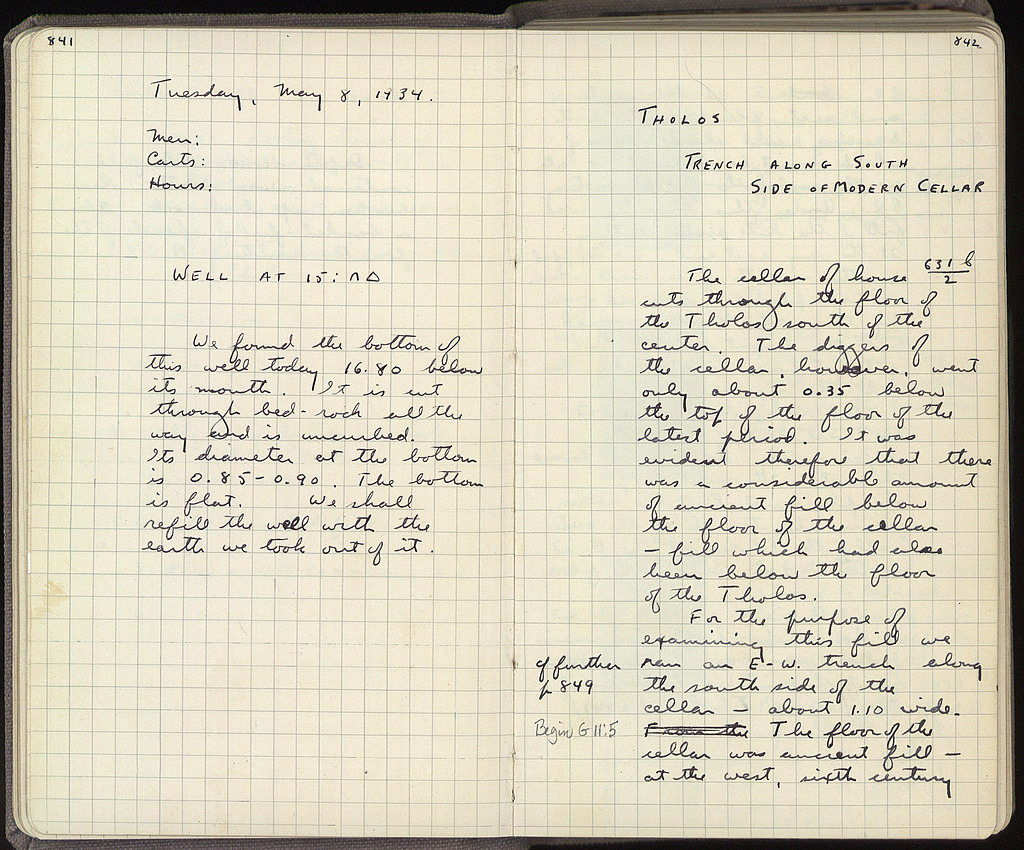 841
Tuesday, May 8, 1934.
Men:
Carts:
Hours:
WELL AT 15:ΛΔ
We found the bottom of
this well today 16.80 below
its mouth. It is cut
through bed-rock all the
way and is uncurbed.
Its diameter at the bottom
is 0.85-0.90. The bottom
is flat. We shall
refill the well with the
earth we took out of it.
842
THOLOS
TRENCH ALONG SOUTH
SIDE OF MODERN CELLAR
The cellar of house 631b/2
cuts through the floor of
the Tholos south of the
center. The diggers of
the cellar, however, went
only about 0.35 below
the top of the floor of the
latest period. It was
evident therefore that there
was a considerable amount
of ancient fill below
the floor of the cellar
– fill which had also
been below the floor
of the Tholos.
For the purpose of
examining this fill we
ran an E-W. trench along
the south side of the
cellar – about 1.10 wide.
From the The floor of the
cellar was ancient fill –
at the west, sixth century
cf further
p 849
Begin G 11:5